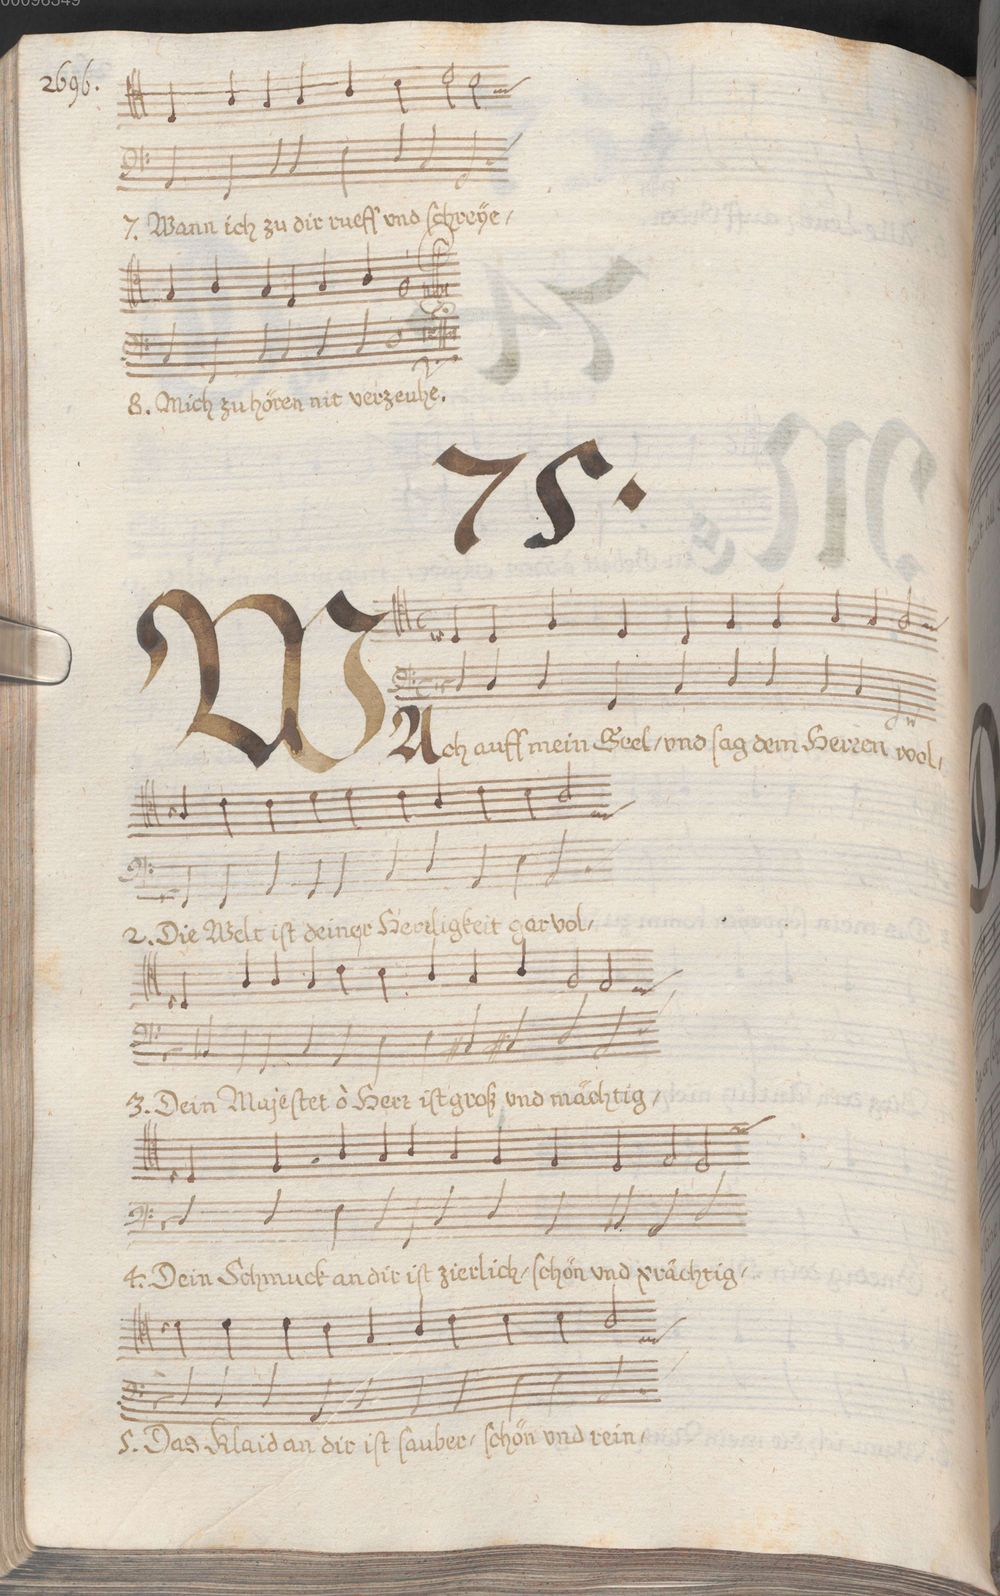 00096349
2696.
7. Wann ich zu dir rueff vnd schreÿe/
8. Mich zu hören nit verzeuhe.
75.
WAch auff mein Seel/ vnd sag dem Herren wol/
2. Die Welt ist deiner Herrligkeit gar vol/
3. Dein Majestet ò Herr ist groß vnd mächtig/
4. Dein Schmuck an dir ist zierlich/ schön vnd prächtig/
5. Das Klaid an dir ist sauber/ schön vnd rein/